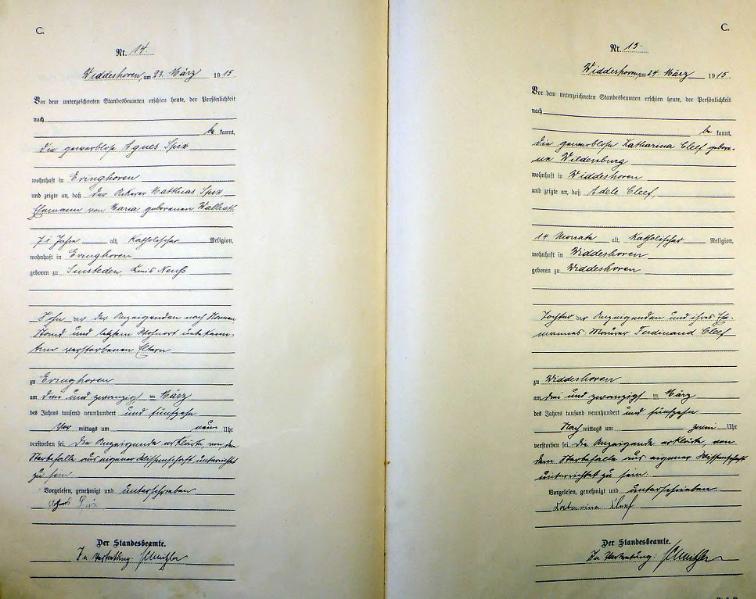 C.
Nr. 14
Widdeshoven, am 23. März 1915
Vor dem unterzeichneten Standesbeamten erschien heute, der Persönlichkeit
nach
be kannt,
die gewerblose Agnes Spix
wohnhaft in Evinghoven
und zeigte an, daß der Ackerer Matthias Spix
Ehemann von Maria geborenen Wallrath
71 Jahre alt, Katholischer Religion,
wohnhaft in Evinghoven
geboren zu Sinsteden Kreis Neuß
Sohn der der Anzeigenden nach Namen
Stand und letzten Wohnort unbekann-
ten verstorbenen Eltern
zu Evinghoven
am drei und zwanzigsten März
des Jahres tausend neunhundert und fünfzehn
Vor mittags um neun Uhr
verstorben sei. Die Anzeigende erklärte von dem
Sterbefalle aus eigener Wissenschaft unterrichtet
zu sein.
Vorgelesen, genehmigt und unterschrieben
Agnes Spix
Der Standesbeamte.
In Vertretung:
C.
Nr. 15
Widdeshoven, am 24. März 1915
Vor dem unterzeichneten Standesbeamten erschien heute, der Persönlichkeit
nach
be kannt,
die gewerblose Katharina Cleef gebore-
ne Wildenburg
wohnhaft in Widdeshoven
und zeigte an, daß Adele Cleef,
14 Monate alt, Katholischer Religion,
wohnhaft in Widdeshoven
geboren zu Widdeshoven
Tochter der Anzeigenden und ihres Ehe-
mannes Maurer Ferdinand Cleef
zu Widdeshoven
am drei und zwanzigsten März
des Jahres tausend neunhundert und fünfzehn
Nach mittags um zwei Uhr
verstorben sei. Die Anzeigende erklärte, von
dem Sterbefalle aus eigener Wissenschaft
unterrichtet zu sein.
Vorgelesen, genehmigt und unterschrieben
Katharina Cleef
Der Standesbeamte.
In Vertretung: